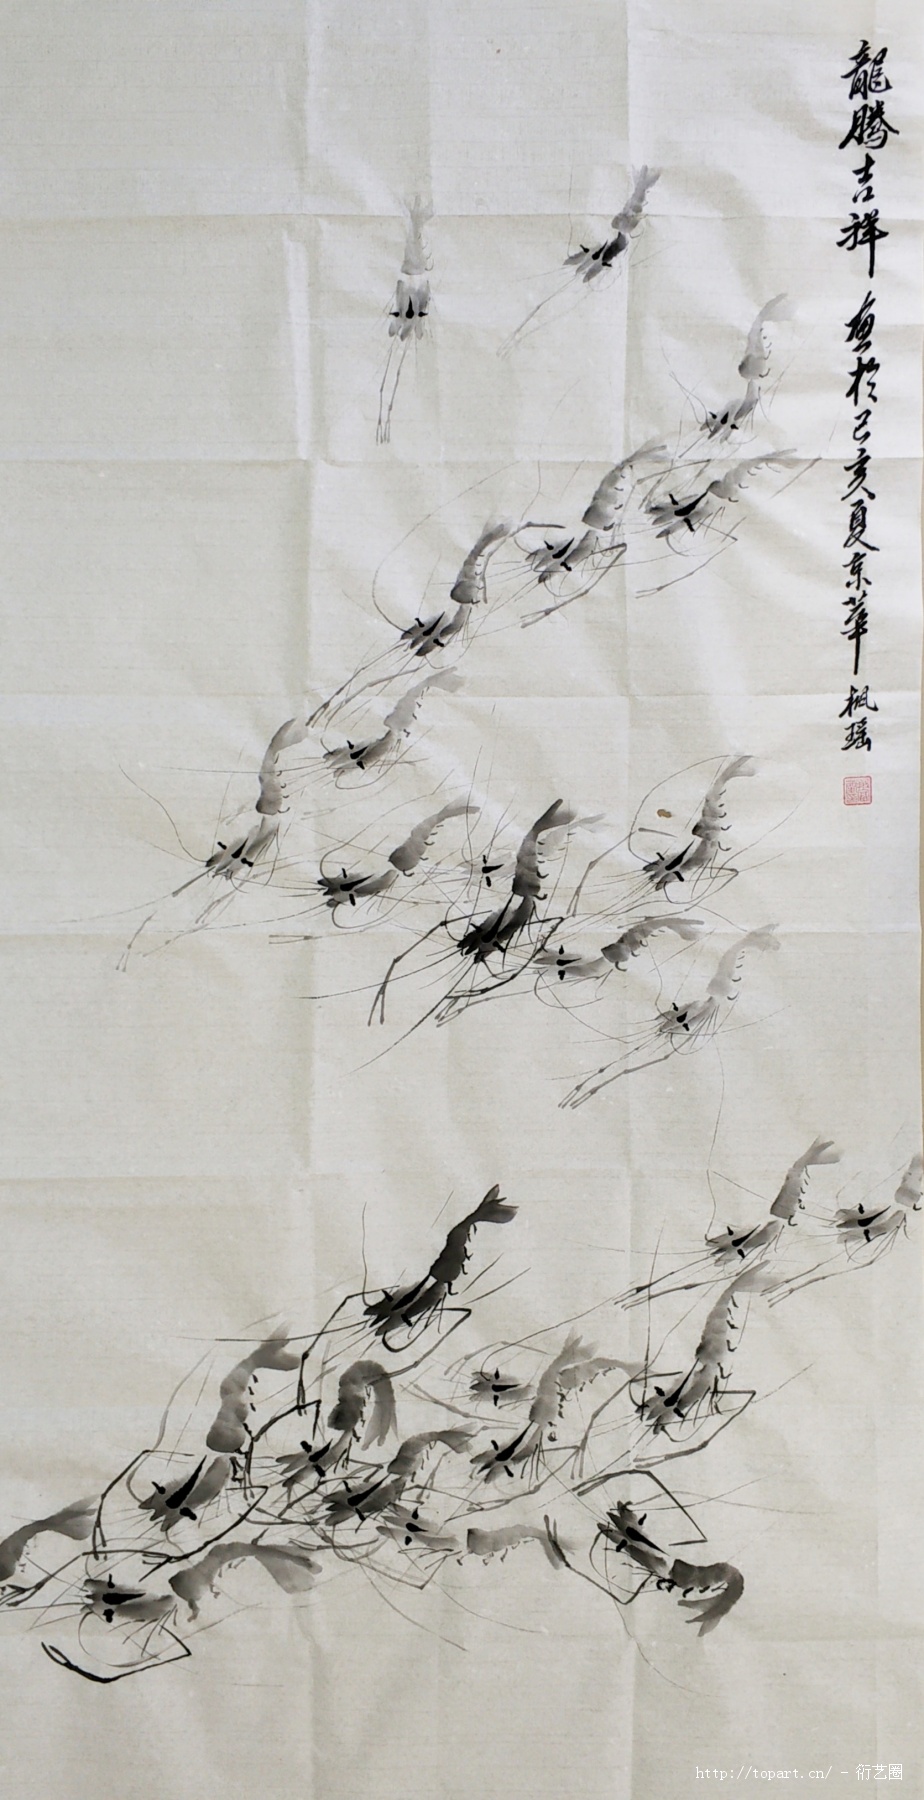 龍騰吉祥 畫於己亥夏京華 楓瑤
http://topart.cn/ - 衍艺圈